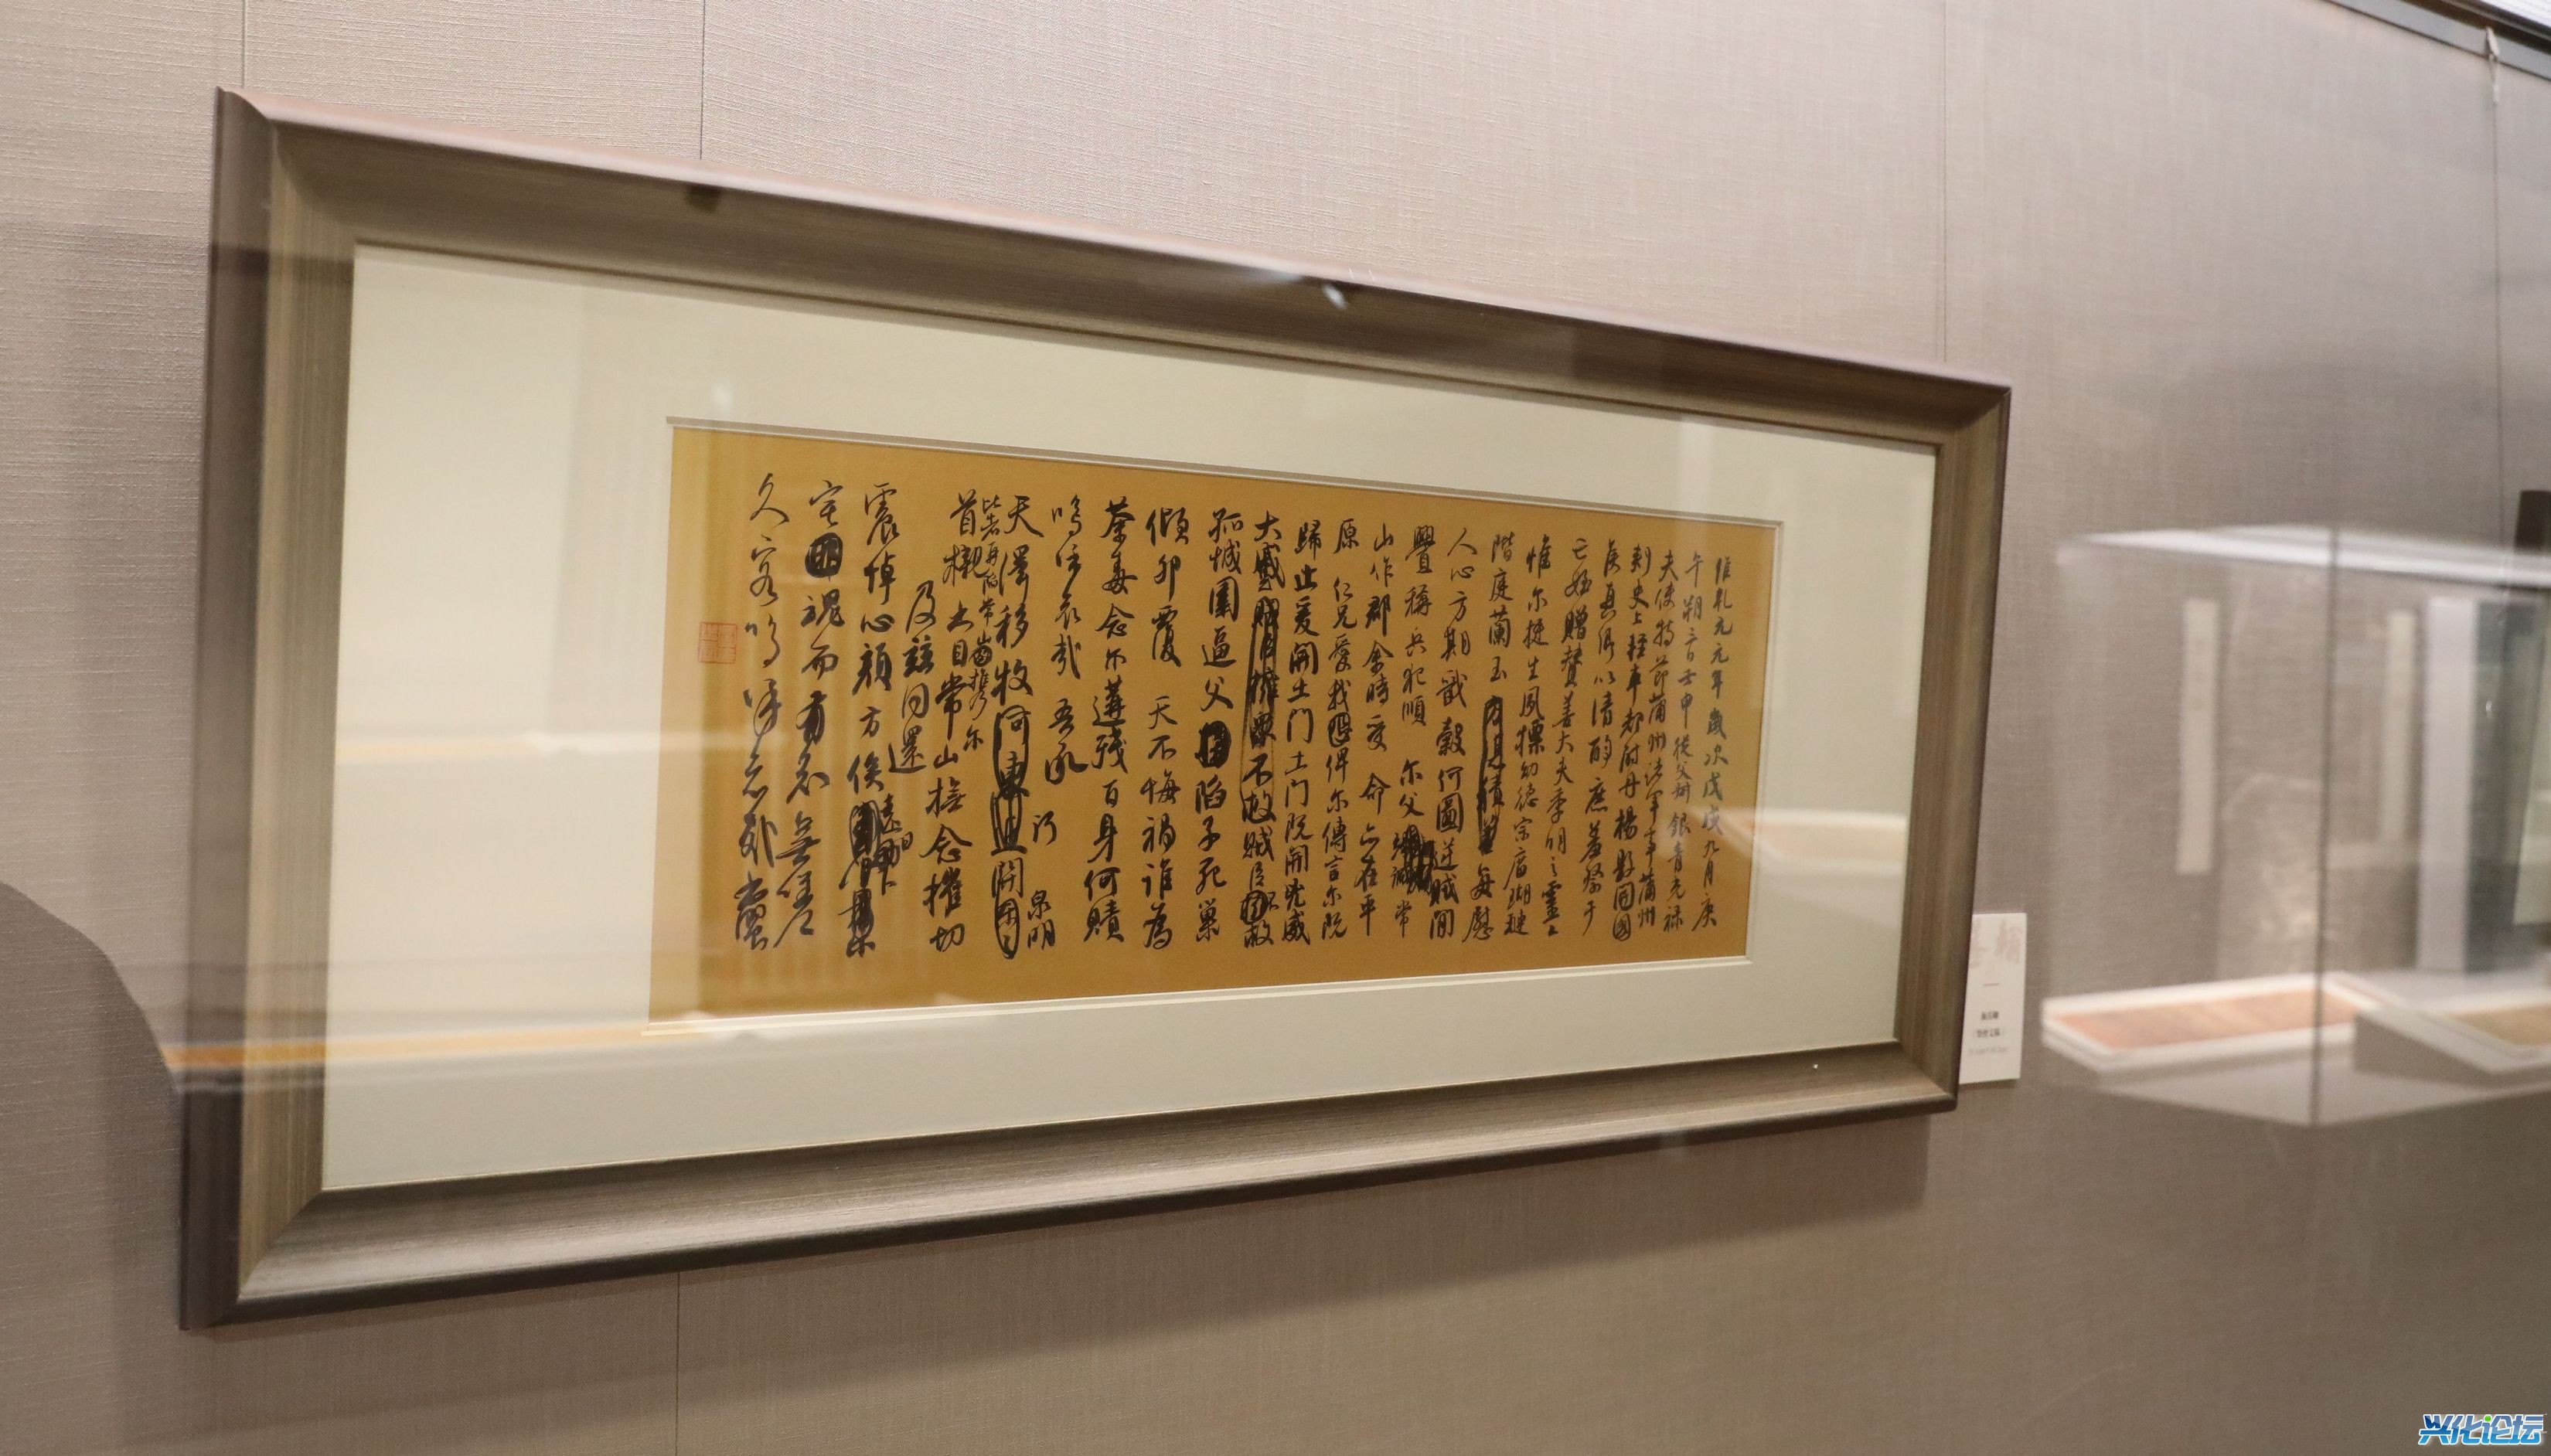 維乾元元年歲次戊戌九月庚
午朔三日壬申從父銀青光禄
夫使持節蒲州諸軍事蒲州
刺史上輕車都尉丹楊縣開國
侯真卿以清酌庶羞祭于
亡姪贈贊善大夫季明之靈
惟爾挺生夙標幼德宗廟瑚璉
階庭蘭玉方憑積善每慰
人心方期戩穀何圖逆賊間
釁稱兵犯順爾父竭誠常
山作郡余時受命亦在平
原仁兄愛我俾爾傳言爾既
歸止爰開土門土門既開兇威
大蹙賊臣擁眾不救賊臣不救
孤城圍逼父陷子死巢
傾卵覆天不悔禍誰為
荼毒念爾遘殘百身何贖
嗚呼哀哉吾承
天澤移牧河東近
泉明
比者再陷常山攜爾
首櫬
及茲同還
撫念摧切
震悼心顏方俟
遠日
宅
魂而有知無嗟
久客嗚呼哀哉尚饗
兴化论坛